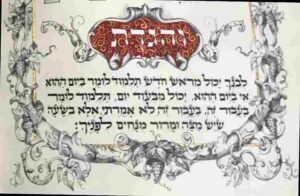 והגדת
לבנך יכול מראש חדש תלמוד לומר ביום ההוא
אי ביום ההוא. יכול מבעוד יום, תלמוד לומר
בעבור זה. בעבור זה לא אמרתי, אלא בשעה
שיש מצה ומרור מנחים לפניך: